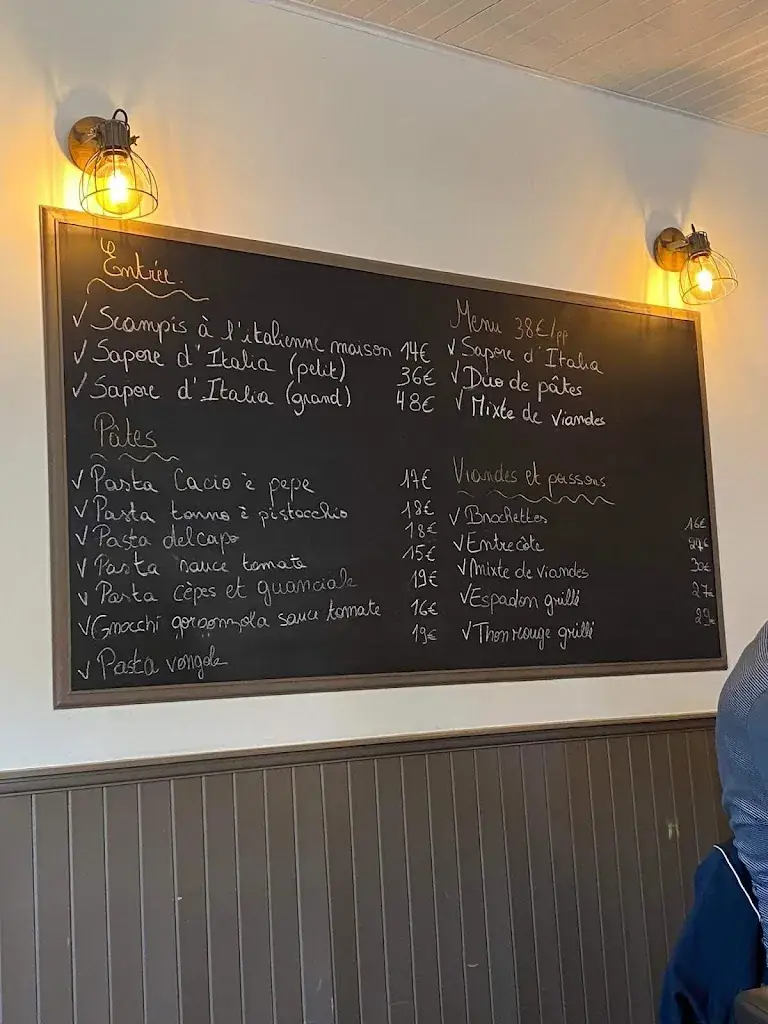 Entrée
✓ Scampis à l'italienne maison 14€
✓ Sapore d'Italia (petit) 36€
✓ Sapore d'Italia (grand) 48€
Pâtes
✓ Pasta Cacio è pepe 17€
✓ Pasta tonno è pistacchio 18€
✓ Pasta del capo 18€
✓ Pasta sauce tomate 15€
✓ Pasta cèpes et guanciale 19€
✓ Gnocchi gorgonzola sauce tomate 16€
✓ Pasta vongole 19€
Menu 38€/pp
✓ Sapore d'Italia
✓ Duo de pâtes
✓ Mixte de viandes
Viandes et poissons
✓ Brochettes 16€
✓ Entrecôte
✓ Mixte de viandes 30€
✓ Espadon grillé 27€
✓ Thon rouge grillé 29€